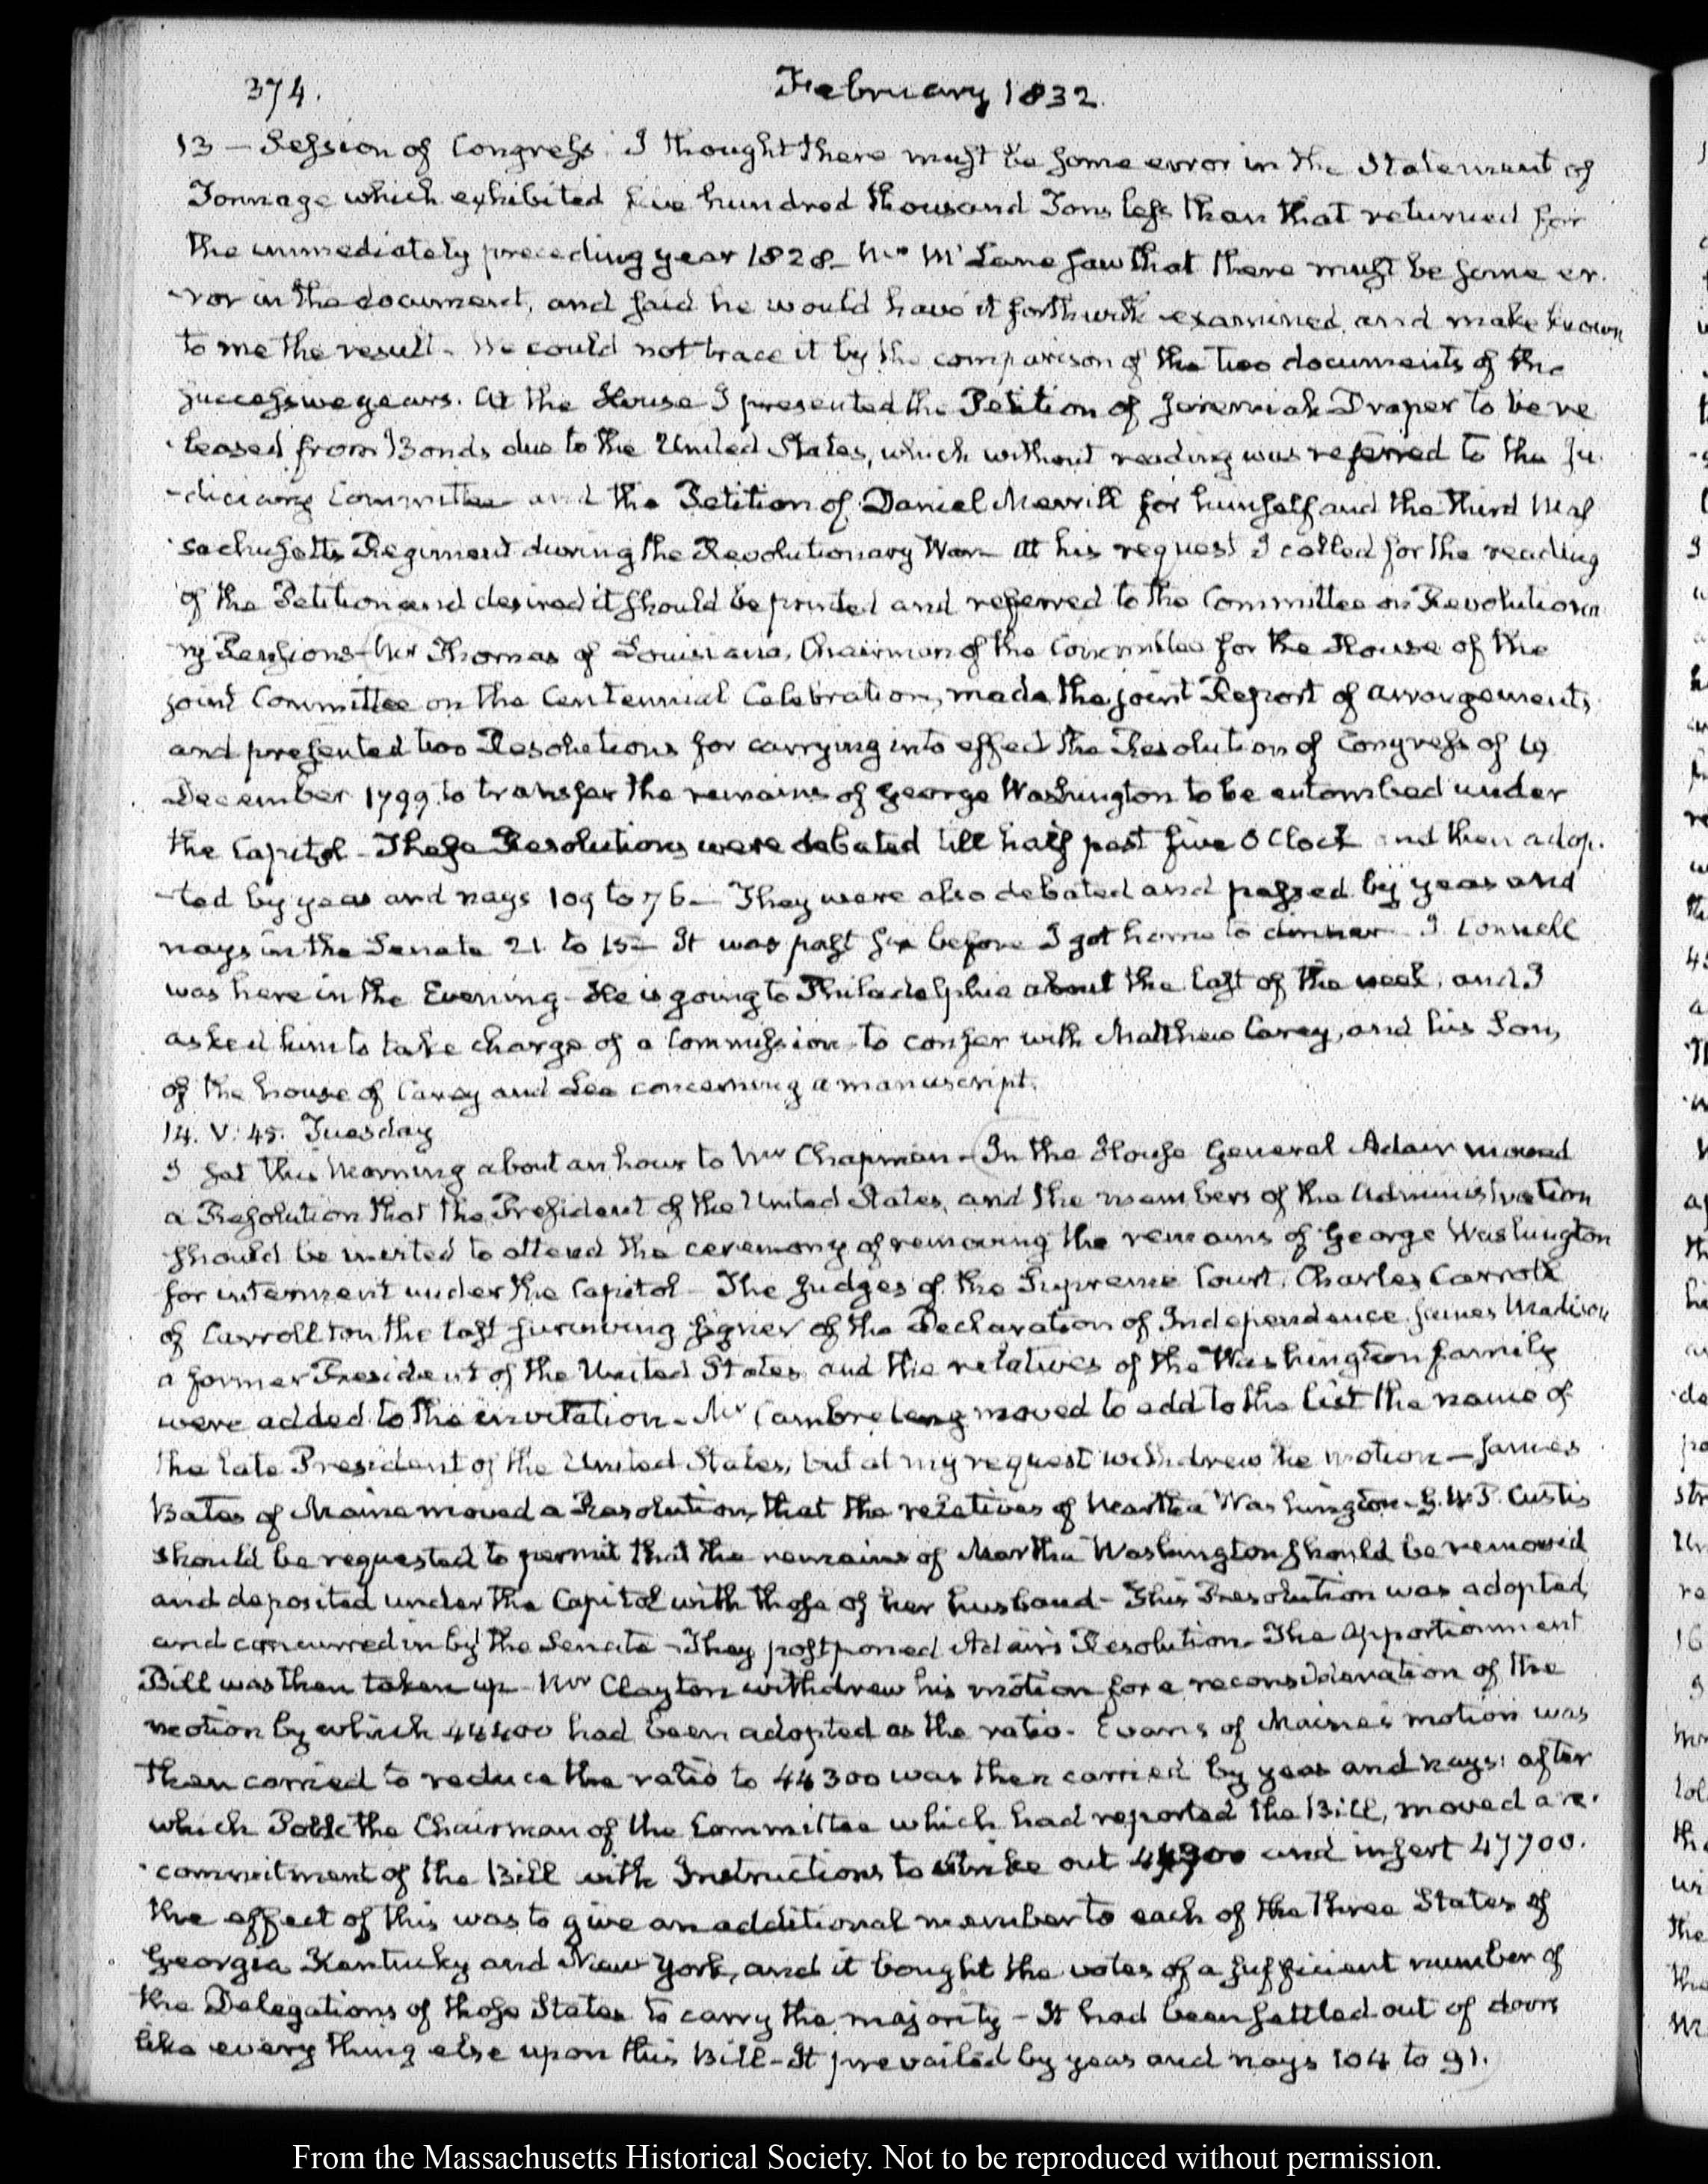 374. February 1832.
13 — Session of Congress. I thought there must be some error in the Statement of
Tonnage which exhibited five hundred thousand Tons less than that returned for
the immediately preceding year 1828 — Mr McLane saw that there must be some er-
-ror in the document, and said he would have it forthwith examined, and make known
to me the result — We could not trace it by the comparison of the two documents of the
successive years. At the House I presented the Petition of Jeremiah Draper to be re
-leased from Bonds due to the United States, which without reading was referred to the Ju-
-diciary Committee and the Petition of Daniel Merrill for himself and the third Mas
-sachusetts Regiment during the Revolutionary War — At his request I called for the reading
of the Petition and desired it should be printed and referred to the Committee on Revolutiona
ry Pensions — Mr Thomas of Louisiana, Chairman of the Committee for the House of the
joint Committee on the Centennial Celebration, made the joint Report of arrangements,
and presented two Resolutions for carrying into effect the Resolution of Congress of 19
December 1799. to transfer the remains of George Washington to be entombed under
the Capitol — These Resolutions were debated till half past five O Clock and then adop-
-ted by yeas and nays 109 to 76 — They were also debated and passed by yeas and
nays in the Senate 21 to 15 — It was past six before I got home to dinner — J. Connell
was here in the Evening — He is going to Philadelphia about the last of the week, and I
asked him to take charge of a Commission to confer with Matthew Carey, and his Son,
of the house of Carey and Lea concerning a manuscript.
14. V: 45. Tuesday
I sat this Morning about an hour to Mr Chapman — In the House General Adair moved
a Resolution that the President of the United States, and the members of the Administration
should be invited to attend the ceremony of removing the remains of George Washington
for interment under the Capitol — The Judges of the Supreme Court, Charles Carroll
of Carrollton, the last surviving signer of the Declaration of Independence, James Madison
a former President of the United States, and the relatives of the Washington family
were added to the invitation — Mr Cambreleng moved to add to the list the name of
the late President of the United States, but at my request withdrew the motion — James
Bates of Maine moved a Resolution, that the relatives of Martha Washington — G. W. P. Custis
should be requested to permit that the remains of Martha Washington should be removed
and deposited under the Capitol with those of her husband — This Resolution was adopted,
and concurred in by the Senate — They postponed Adair's Resolution — The Apportionment
Bill was then taken up — Mr Clayton withdrew his motion for a reconsideration of the
motion by which 44400 had been adopted as the ratio — Evans of Maine's motion was
then carried to reduce the ratio to 44300 was then carried by yeas and nays: after
which Polk the Chairman of the Committee which had reported the Bill, moved a re-
-commitment of the Bill with Instructions to strike out 44300 and insert 47700.
the effect of this was to give an additional member to each of the three States of
Georgia Kentucky and New York, and it bought the votes of a sufficient number of
the Delegations of those States to carry the majority — It had been settled out of doors
like every thing else upon this Bill — It prevailed by yeas and nays 104 to 91.
From the Massachusetts Historical Society. Not to be reproduced without permission.